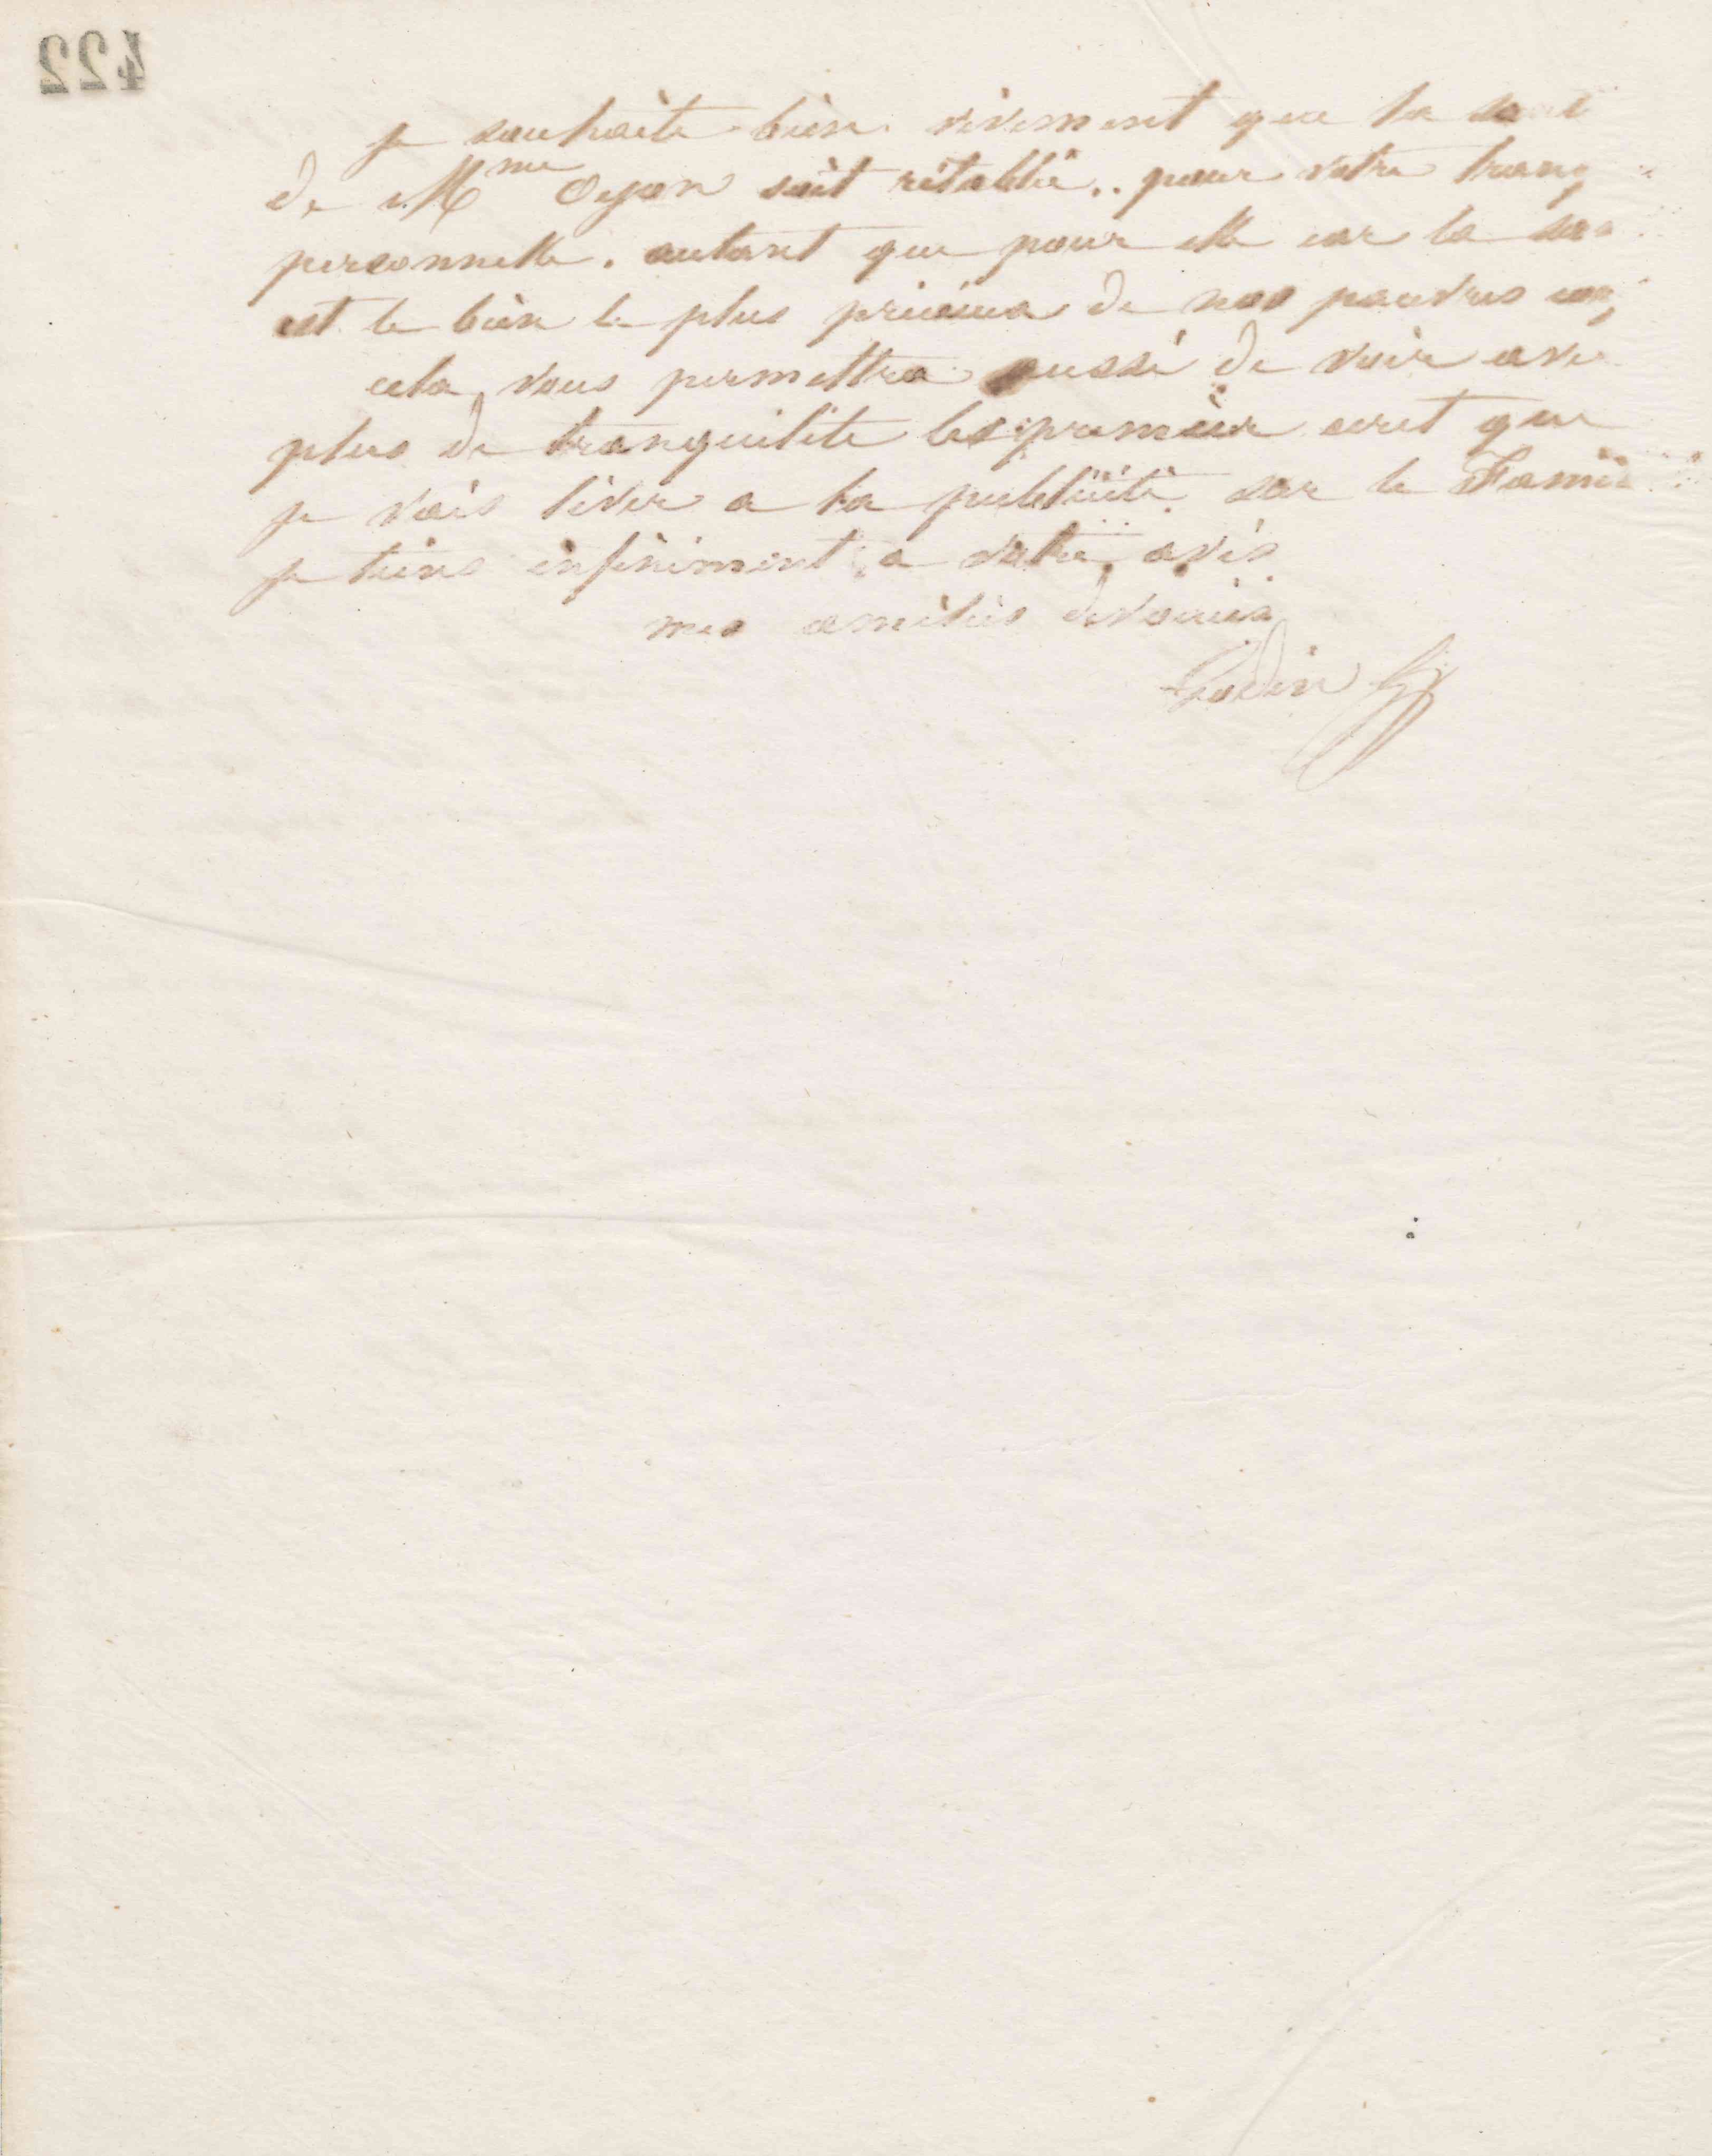 422
je souhaite bien vivement que la santé
de Mme Oyon soit rétablie.. pour votre tranq
personnelle. autant que pour elle car la san
est le bien le plus précieux de nos pauvres
cela vous permettra aussi de voir avec
plus de tranquilite les premier ecrit que
je vais livrer a la publicité sur le Famil
je tiens infiniment a votre avis
mes amitiés dévouées
Godin